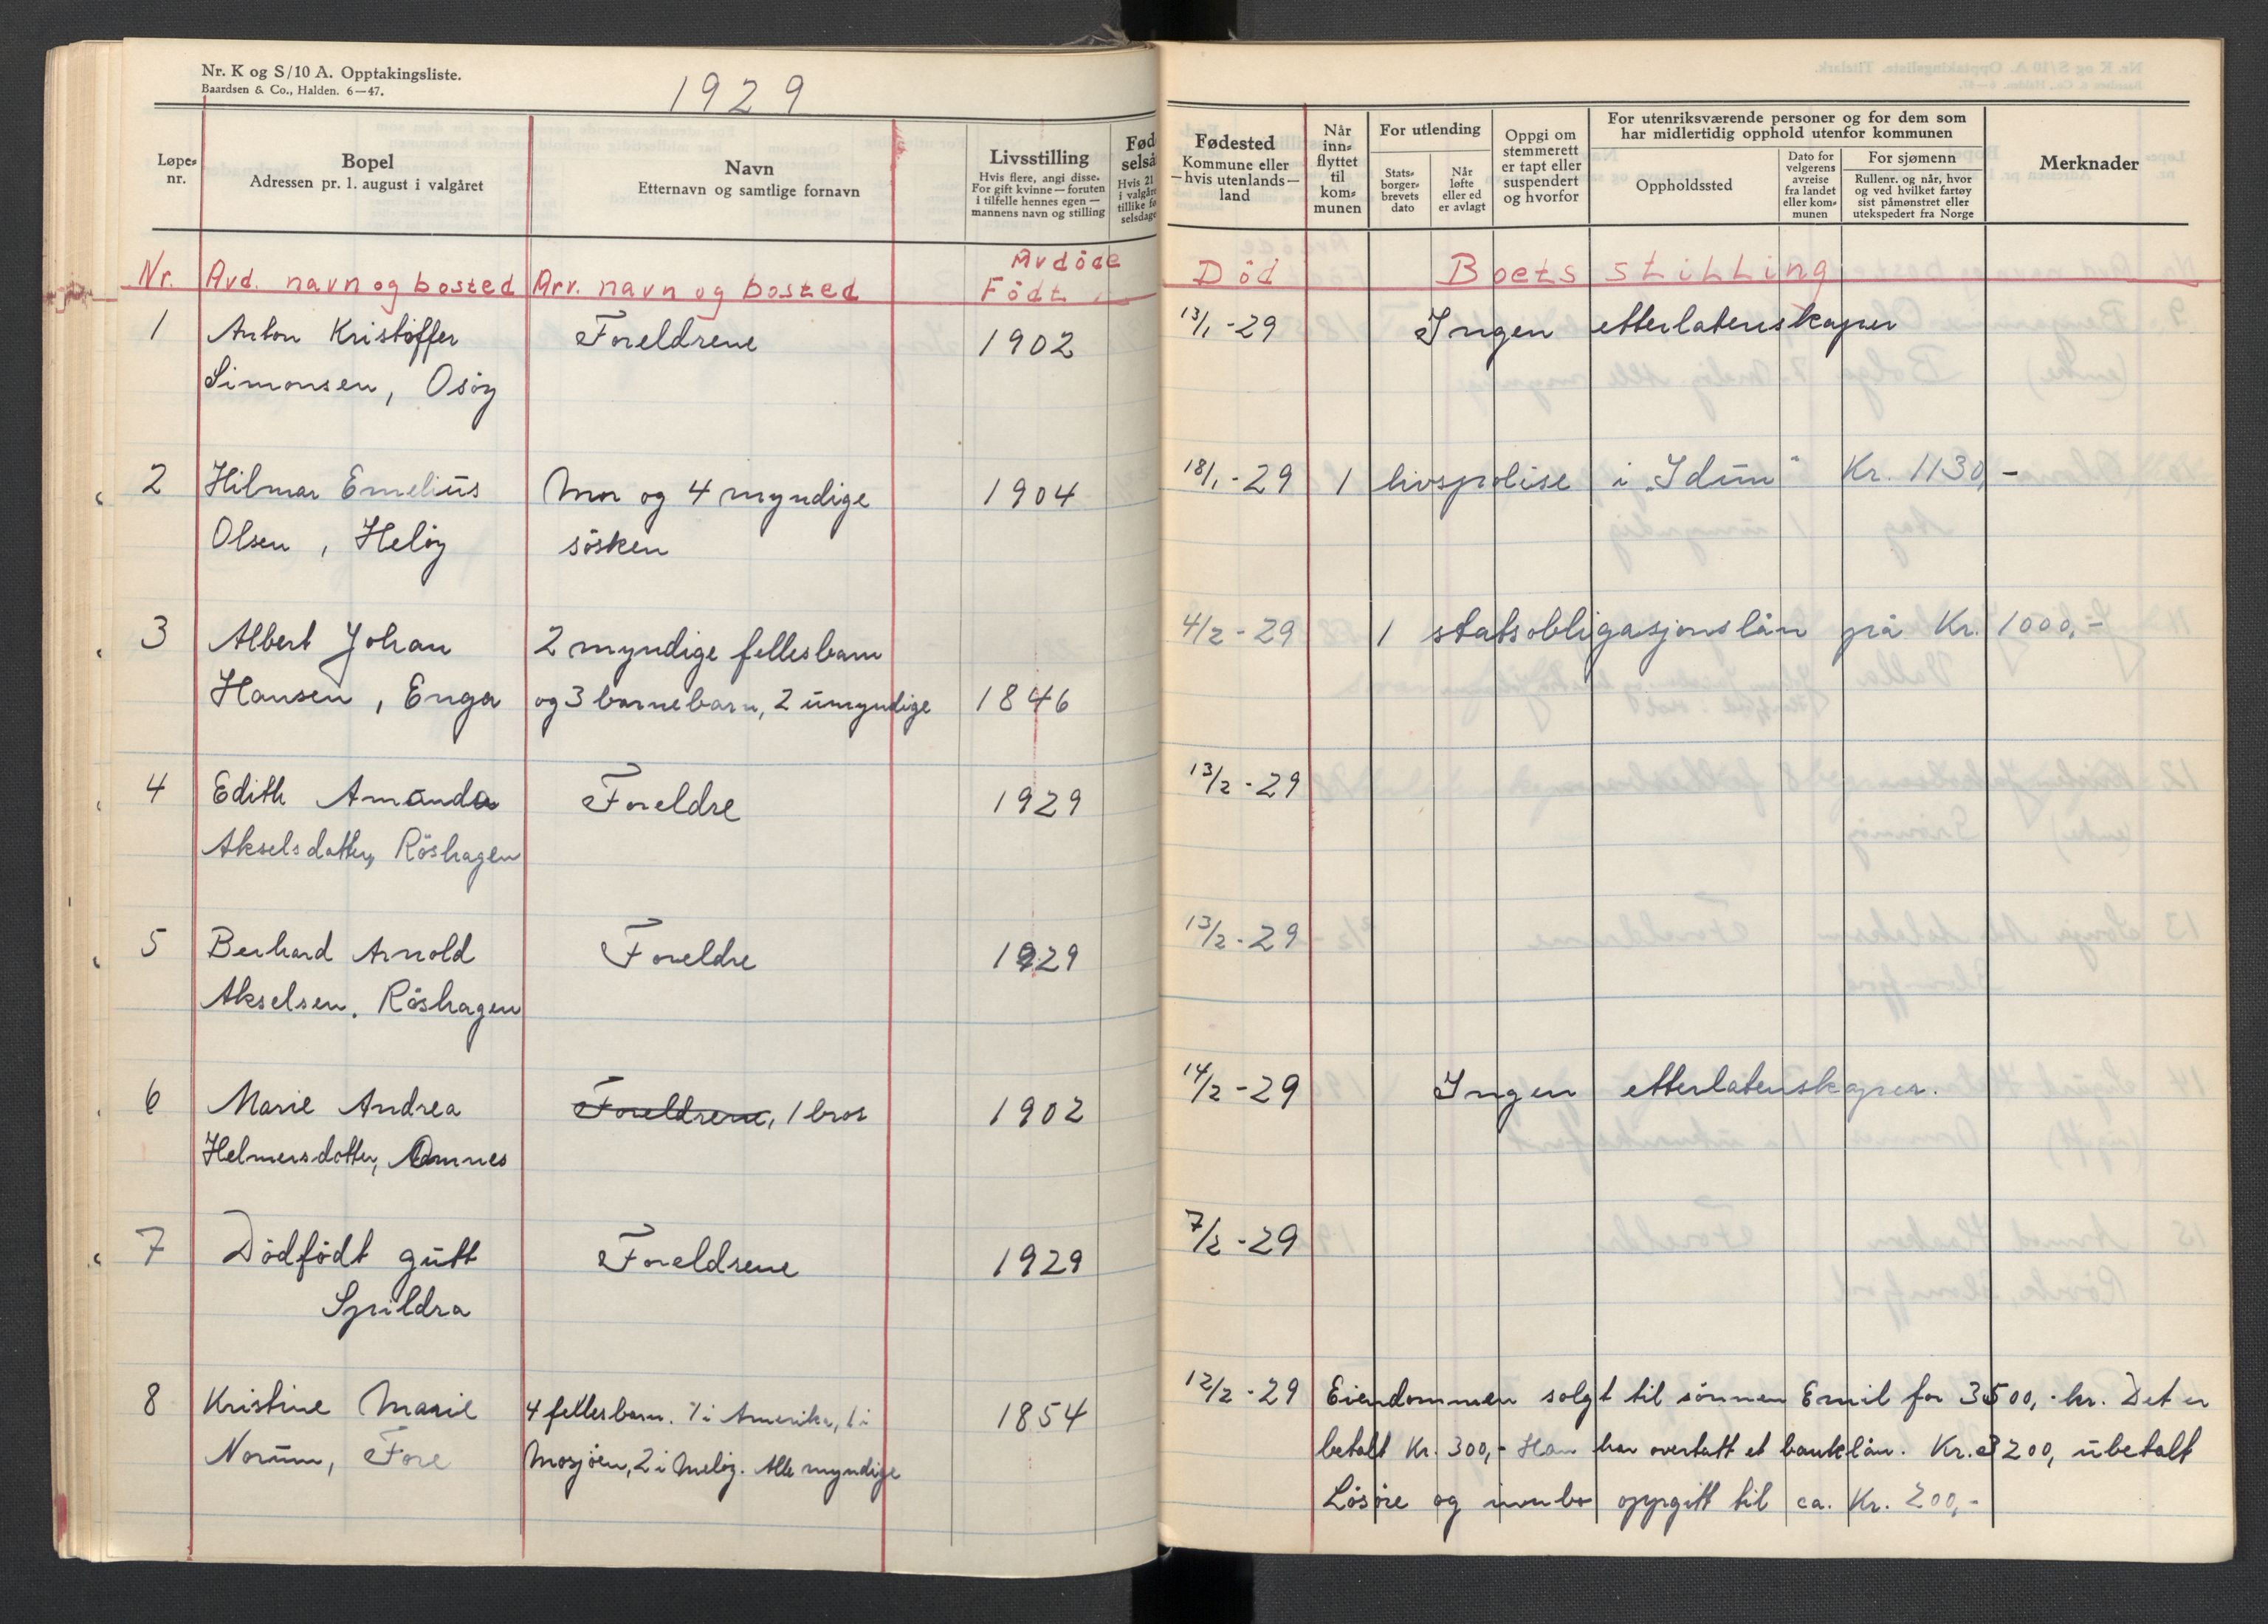 Nr. K og S/10 A. Opptakingsliste.
Baardsen & Co., Halden. 6—47.
1929
Løpe-
nr.
Bopel
Adressen pr. 1. august i valgåret
Navn
Etternavn og samtlige fornavn
Livsstilling
Hvis flere, angi disse.
For gift kvinne — foruten
i tilfelle hennes egen —
mannens navn og stilling
Fød
selså
Hvis 21
i valgåre
tillike fø
selsdage
Fødested
Kommune eller
— hvis utenlands —
land
Når
inn-
flyttet
til
kom-
munen
For utlending
Stats-
borger-
brevets
dato
Når
løfte
eller ed
er avlagt
Oppgi om
stemmerett
er tapt eller
suspendert
og hvorfor
For utenriksværende personer og for dem som
har midlertidig opphold utenfor kommunen
Oppholdssted
Dato for
velgerens
avreise
fra landet
eller kom-
munen
For sjømenn
Rullenr. og når, hvor
og ved hvilket fartøy
sist påmønstret eller
utekspedert fra Norge
Merknader
Nr. Avd. navn og bosted Arv. navn og bosted Avdöde Födt Död Boets stilling
1 Anton Kristoffer Foreldrene 1902 13/1-29 Ingen etterlatenskaper
Simonsen, Osöy
2 Hilmar Emelius Mor og 4 myndige 1904 18/1-29 1 livspolise i „Idun" Kr. 1130,-
Olsen, Helöy sösken
3 Albert Johan 2 myndige fellesbarn 4/2-29 1 statsobligasjonslån på Kr. 1000,-
Hansen, Enga og 3 barnebarn, 2 umyndige 1846
4 Edith Amanda Foreldre 1929 13/2-29
Akselsdatter, Röshagen
5 Berhard Arnold Foreldre 1929 13/2-29
Akselsen. Röshagen
6 Marie Andrea Foreldrene, 1 bror 1902 14/2-29 Ingen etterlatenskaper.
Helmersdatter, Ømnes
7 Dödfödt gutt Foreldrene 1929 7/2-29
Spildra
8 Kristine Marie 4 fellesbarn. 1 i Amerika, 1 i 1854 12/2-29 Eiendommen solgt til sönnen Emil for 3500,- kr. Det er
Norum, Fore Mosjöen, 2 i Melöy. Alle myndige betalt Kr. 300,- Han har overtatt et banklån. Kr. 3200, ubetalt
Lösöre og innbo oppgitt til ca. Kr. 200,-